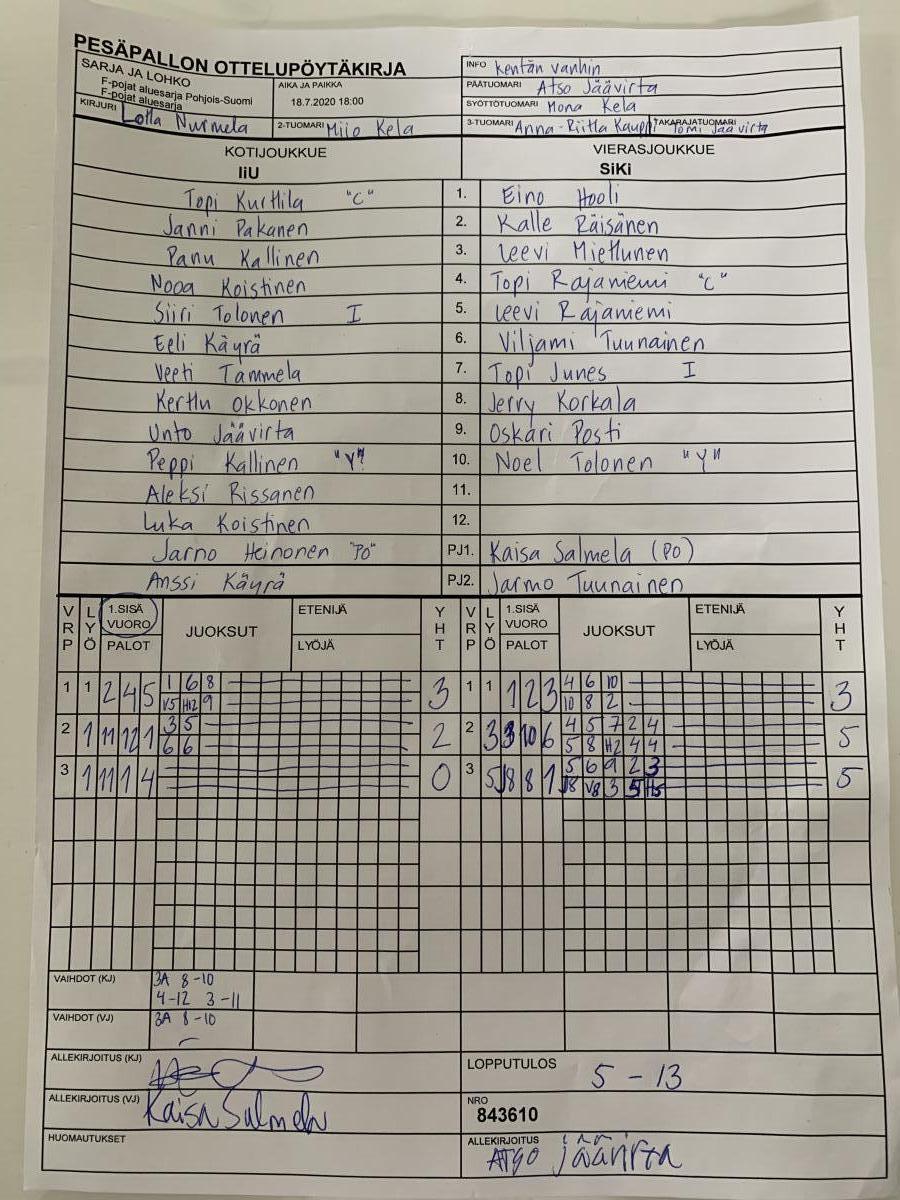 PESÄPALLON OTTELUPÖYTÄKIRJA
SARJA JA LOHKO
F-pojat aluesarja Pohjois-Suomi
F-pojat aluesarja
AIKA JA PAIKKA
18.7.2020 18:00
KIRJURI Lotta Nurmela
2-TUOMARI Miio Kela
INFO Kentän vanhin
PÄÄTUOMARI Atso Jäävirta
SYÖTTÖTUOMARI Mona Kela
3-TUOMARI Anna-Riitta Kauppi TAKARAJATUOMARI Tomi Jäävirta
KOTIJOUKKUE VIERASJOUKKUE
IiU SiKi
Topi Kurttila "C" 1. Eino Hooli
Janni Pakanen 2. Kalle Räisänen
Panu Kallinen 3. Leevi Miettunen
Nooa Koistinen 4. Topi Rajaniemi "C"
Siiri Tolonen I 5. Leevi Rajaniemi
Eeli Käyrä 6. Viljami Tuunainen
Veeti Tammela 7. Topi Junes I
Kerttu Okkonen 8. Jerry Korkala
Unto Jäävirta 9. Oskari Posti
Peppi Kallinen "Y" 10. Noel Tolonen "Y"
Aleksi Rissanen 11.
Luka Koistinen 12.
Jarno Heinonen "PO" PJ1. Kaisa Salmela (PO)
Anssi Käyrä PJ2. Jarmo Tuunainen
VRP LYÖ 1.SISÄ VUORO PALOT JUOKSUT ETENIJÄ LYÖJÄ YHT VRP LYÖ 1.SISÄ VUORO PALOT JUOKSUT ETENIJÄ LYÖJÄ YHT
1 1 2 4 5 1 6 8 3 1 1 1 2 3 4 6 10 3
V5 H12 9 10 8 2
2 1 11 12 1 3 5 2 2 3 3 10 6 4 5 7 2 4 5
6 6 5 8 H2 4 4
3 1 11 1 4 0 3 5 8 1 5 6 9 2 3 5
V8 3 5 H5
VAIHDOT (KJ) 3A 8-10
4-12 3-11
VAIHDOT (VJ) 3A 8-10
ALLEKIRJOITUS (KJ)
LOPPUTULOS 5 - 13
ALLEKIRJOITUS (VJ) Kaisa Salmela
NRO
843610
HUOMAUTUKSET
ALLEKIRJOITUS Atso Jäävirta